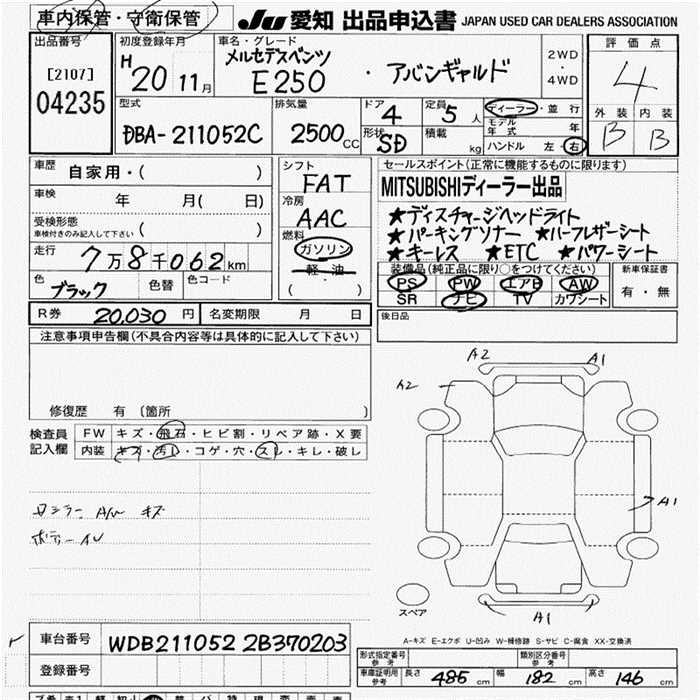 車内保管・守衛保管
JU 愛知 出品申込書 JAPAN USED CAR DEALERS ASSOCIATION
出品番号
[2107]
04235
初度登録年月
H 20 11月
車名・グレード
メルセデスベンツ
E250 ・ アバンギャルド
2WD
・
4WD
評価点
4
外装 内装
B B
型式
DBA-211052C
排気量
2500cc
ドア
4
形状
SD
定員
5人
積載
kg
ディーラー・並行
モデル年式 年
ハンドル 左・右
車歴
自家用・( )
車検
年 月( 日)
受検形態
車検付きのみ記入して下さい ( )
走行
7万8千062km
色
ブラック
色替
色コード
シフト
FAT
冷房
AAC
燃料
ガソリン
軽・油
・
( )
セールスポイント(正常に機能するものに限ります)
MITSUBISHIディーラー出品
★ディスチャージヘッドライト
★パーキングソナー ★ハーフレザーシート
★キーレス ★ETC ★パワーシート
装備品(純正品に限り○をつけてください)
PS PW エアB AW
SR ナビ TV カワシート
新車保証書
有・無
R券 20,030円
名変期限 月 日
後日品
注意事項申告欄(不具合内容等は具体的に記入して下さい)
修復歴 有〔箇所 〕
検査員
記入欄
FW キズ・飛石・ヒビ割・リペア跡・X要
内装 キズ・汚れ・コゲ・穴・スレ・キレ・破レ
A2 A1
A2
A1
A1
スペア
A-キズ E-エクボ U-凹み W-補修跡 S-サビ C-腐食 XX-交換済
車台番号 WDB211052 2B370203
登録番号
形式指定番号
参考
類別区分番号
参考
車庫証明用
参考
長さ 485cm 幅 182cm 高さ 146cm